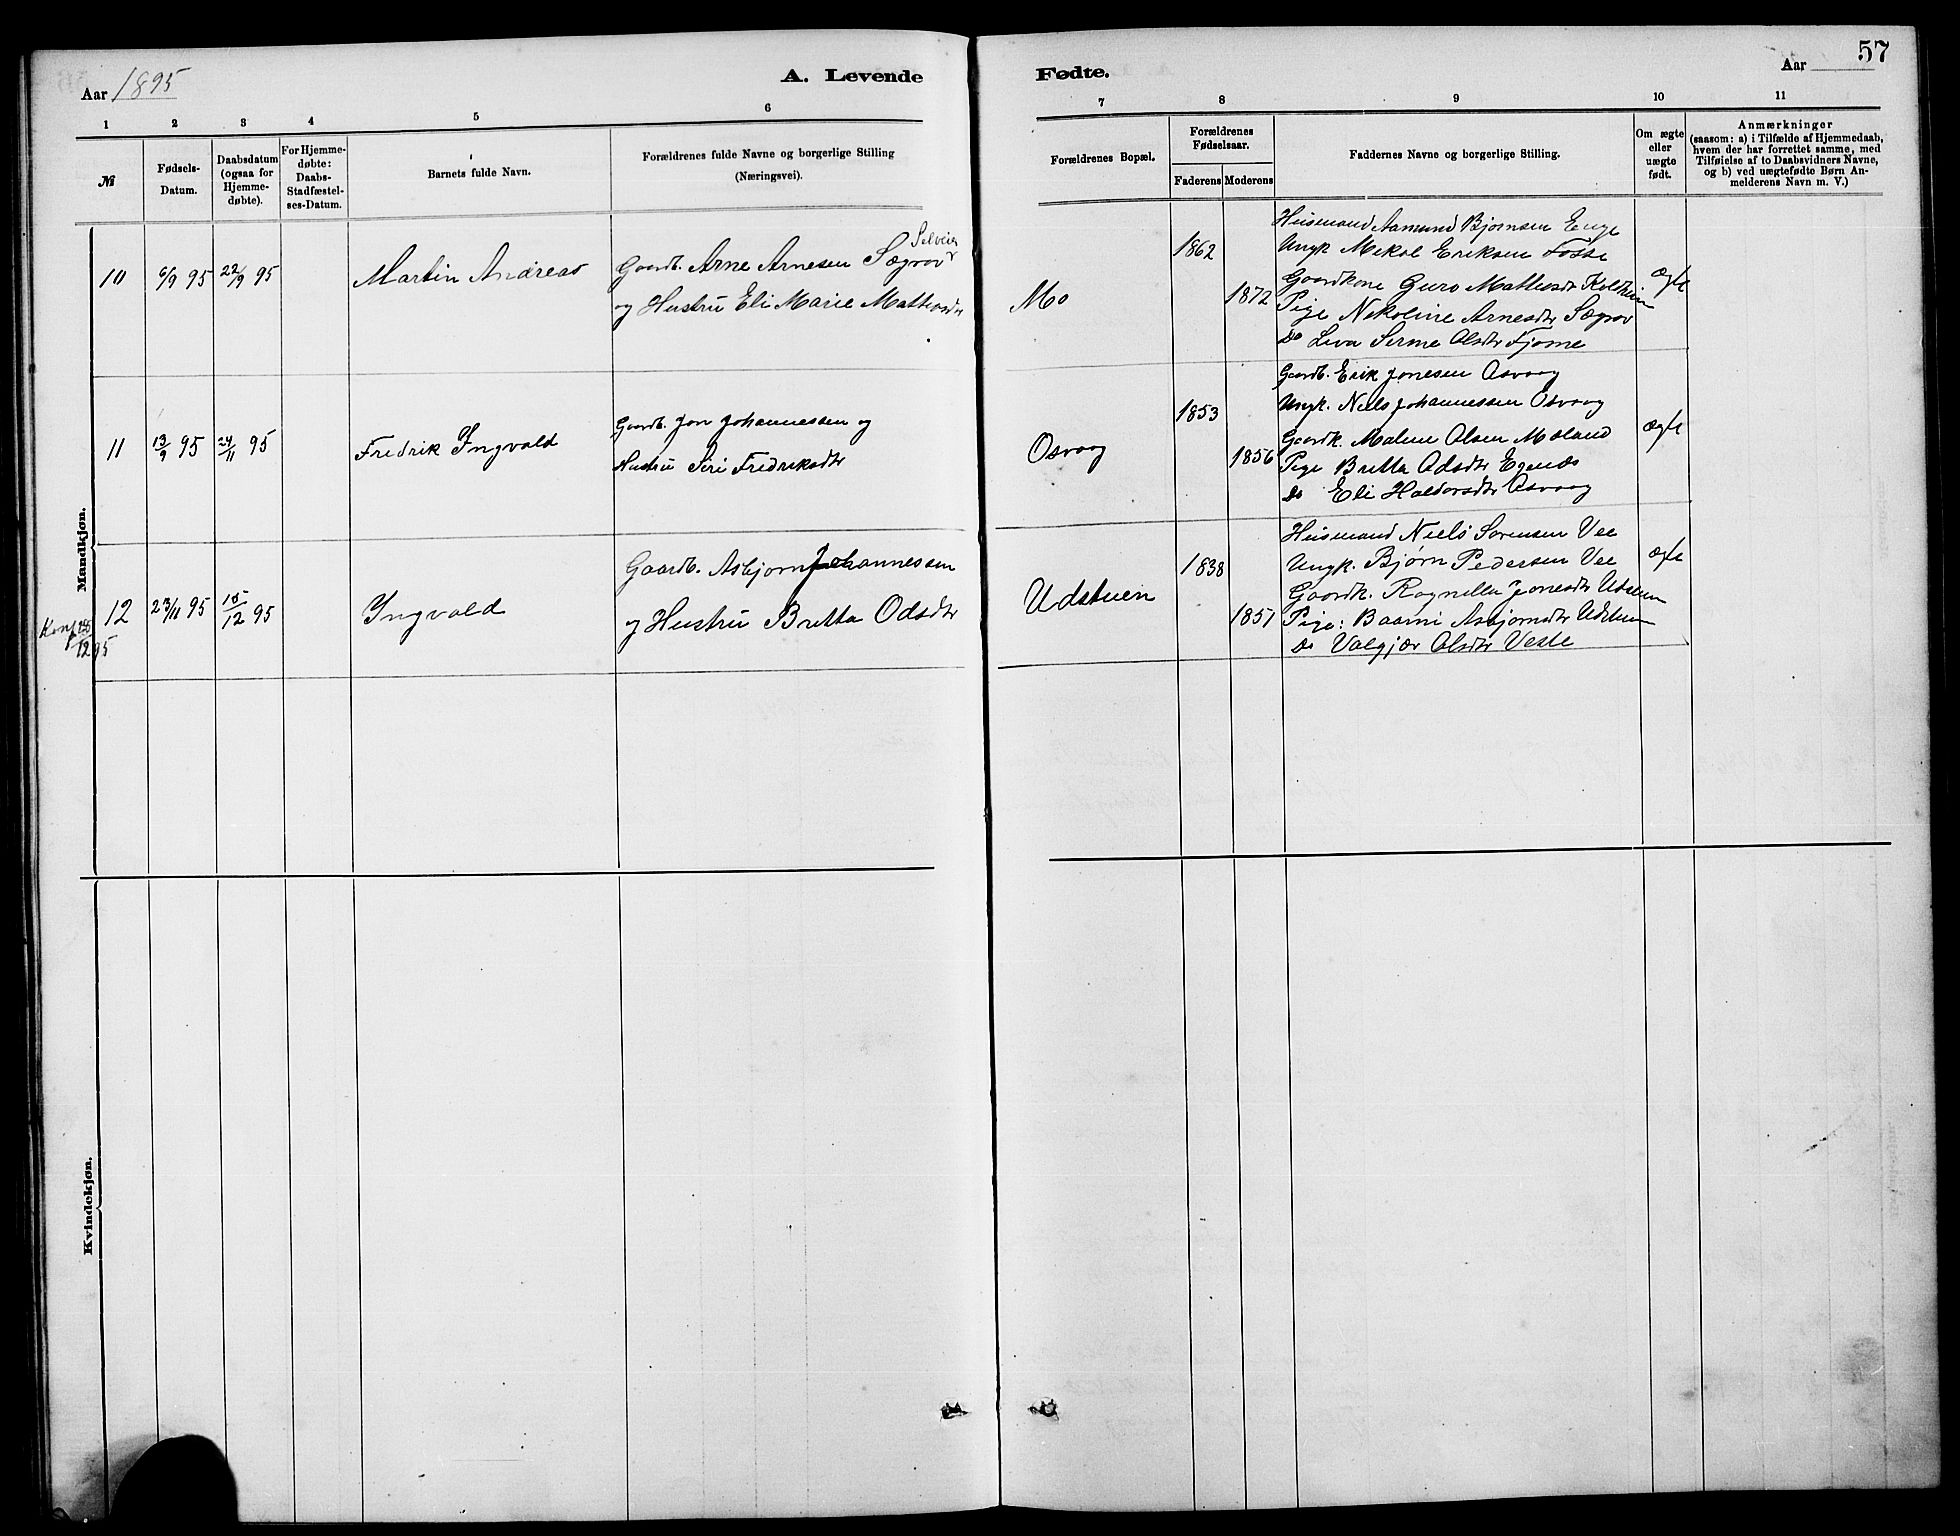 Aar 1895
A. Levende
Fødte.
Aar
57
1 2 3 4 5 6 7 8 9 10 11
№
Fødsels-
Datum.
Daabsdatum
(ogsaa for
Hjemme-
døbte).
For Hjemme-
døbte:
Daabs-
Stadfæstel-
ses-Datum.
Barnets fulde Navn.
Forældrenes fulde Navne og borgerlige Stilling
(Næringsvei).
Forældrenes Bopæl.
Forældrenes
Fødselsaar.
Faderens Moderens
Faddernes Navne og borgerlige Stilling.
Om ægte
eller
uægte
født.
Anmærkninger
(saasom: a) i Tilfælde af Hjemmedaab,
hvem der har forrettet samme, med
Tilføielse af to Daabsvidners Navne,
og b) ved uægtefødte Børn An-
melderens Navn m. V.)
Mandkjøn.
10
6/9 95
22/9 95
Martin Andreas
Selveier
Gaardb. Arne Arnesen Sægrov
og Hustru Eli Marie Mathiasdr
Mo
1862
1872
Husmand Aamund Bjørnsen Enge
Ungk Mikal Eriksen Fosse
Gaardkone Guro Mathiasdt
Pige Nikoline Arnesdtr Sægrov
Do Lina Serine Olsdtr Fjorne
ægte
11
13/9 95
24/11 95
Fredrik Ingvald
Gaardb. Jon Johannessen og
Hustru Siri Fredriksdtr
Osvaag
1853
1856
Gaardb. Erik Jonesen Osvaag
Ungk. Niels Johannessen Osvaag
Gaardk. Malene Olsen Moland
Pige Britta Odsdtr
Do Eli Haldorsdtr Osvaag
ægte
12
23/11 95
15/12 95
Ingvald
Gaardb. Asbjørn Johannessen
og Hustru Britta Odsdtr
Udstuen
1838
1851
Husmand Niels Sørensen Vee
Ungk. Bjørn Pedersen Vee
Gaardk. Ragnilla Jonesdtr Udstuen
Pige: Baarni Asbjørnsdtr Udstuen
Do Valgjær Olsdtr Veste
ægte
Kvindekjøn.